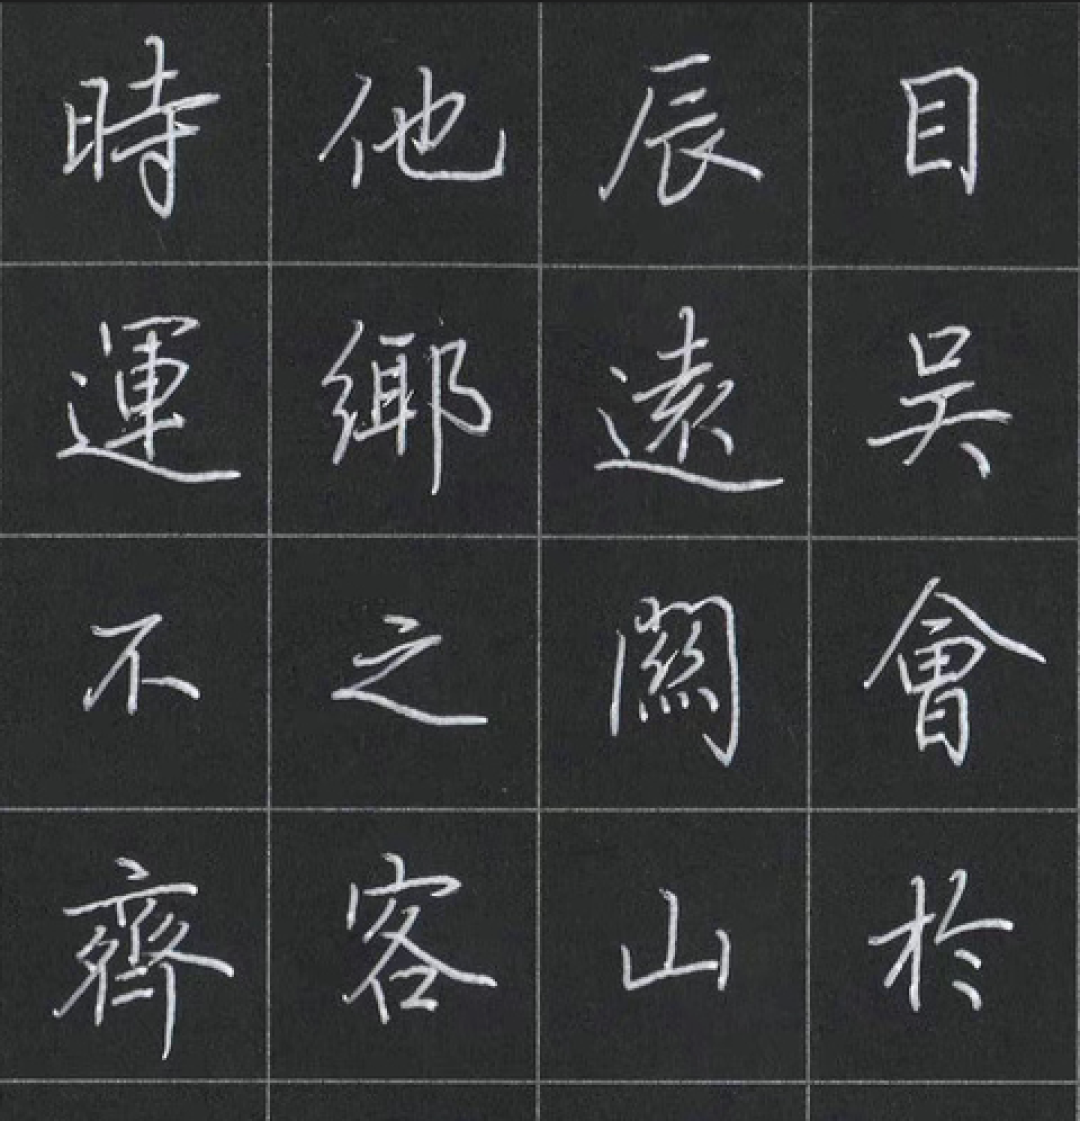 目吳會於
辰遠關山
他鄉之客
時運不齊